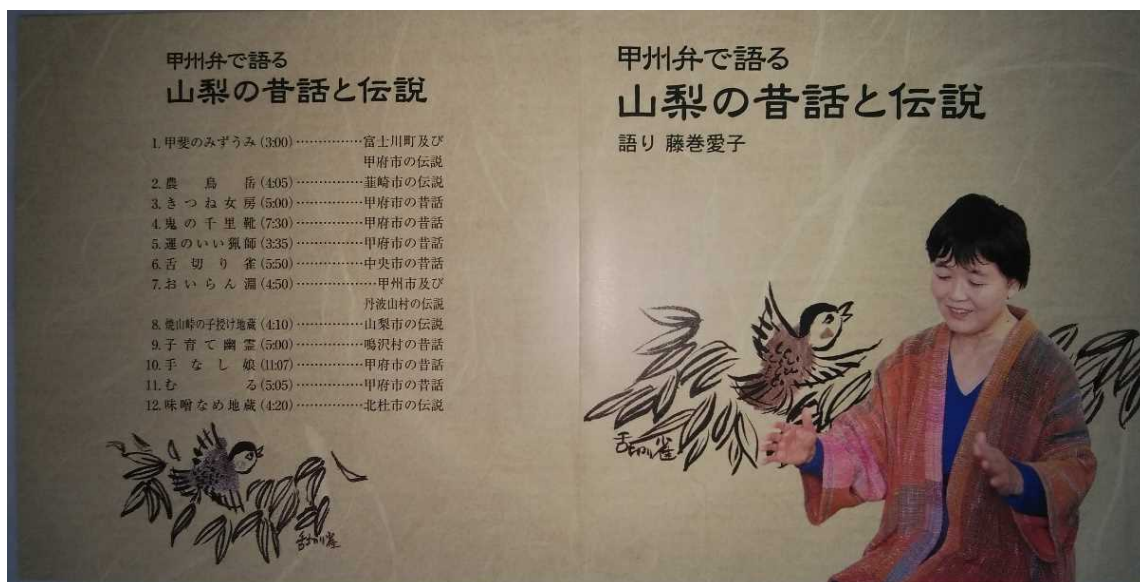 甲州弁で語る
山梨の昔話と伝説
1. 甲斐のみずうみ (3:00)……………富士川町及び
甲府市の伝説
2. 農鳥岳 (4:05)……………韮崎市の伝説
3. きつね女房 (5:00)……………甲府市の昔話
4. 鬼の千里靴 (7:30)……………甲府市の昔話
5. 運のいい猟師 (3:35)……………甲府市の昔話
6. 舌切り雀 (5:50)……………中央市の昔話
7. おいらん淵 (4:50)……………甲州市及び
丹波山村の伝説
8. 焼山峠の子授け地蔵 (4:10)……………山梨市の伝説
9. 子育て幽霊 (5:00)……………鳴沢村の昔話
10. 手なし娘 (11:07)……………甲府市の昔話
11. むる (5:05)……………甲府市の昔話
12. 味噌なめ地蔵 (4:20)……………北杜市の伝説
舌切り雀
甲州弁で語る
山梨の昔話と伝説
語り 藤巻愛子
舌切り雀